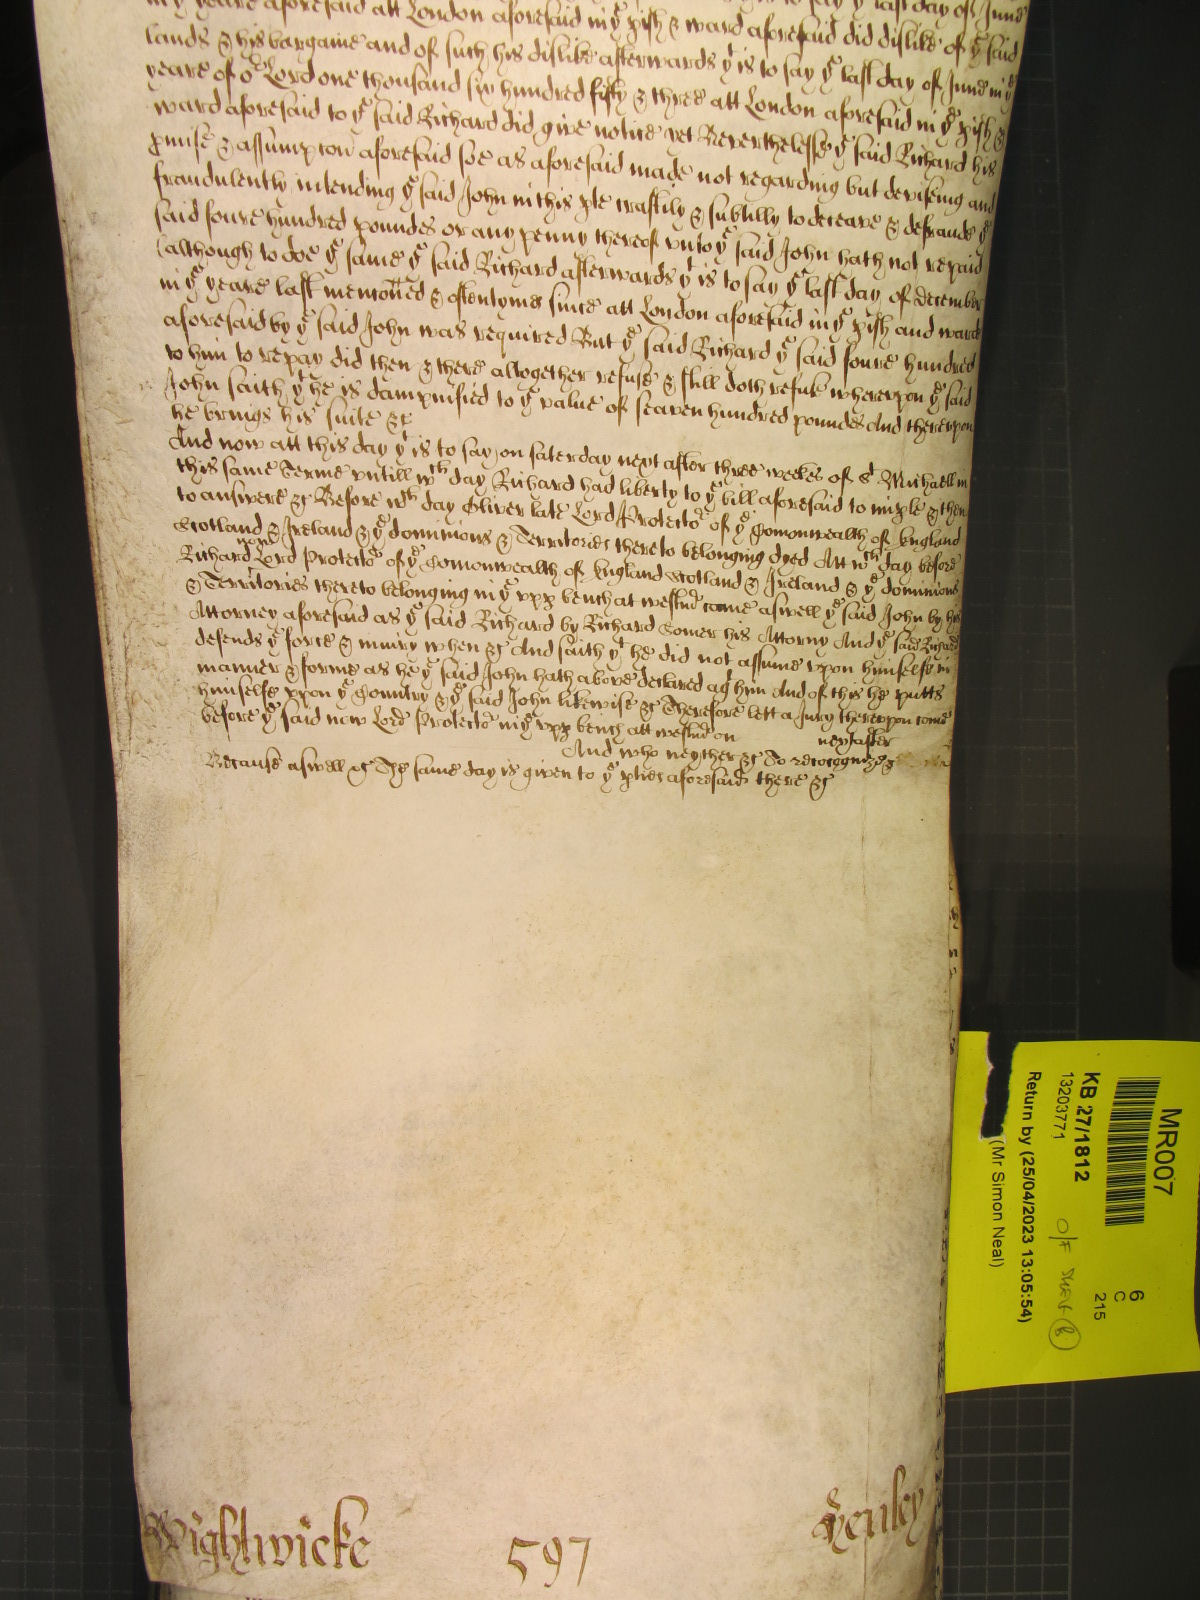 in yͤ yeare aforesaid att London aforesaid in yͤ pish & ward aforesaid did dislike of yͤ said
lands & his bargaine and of such his dislike afterwards yͭ is to say yͤ last day of June in yͤ
yeare of oͬ Lord one thousand six hundred fifty & three att London aforesaid in yͤ pish &
ward aforesaid to yͤ said Richard did give notice yet Neverthelesse yͤ said Richard his
pmise & assumpcon aforesaid soe as aforesaid made not regarding but deviseing and
fraudulently intending yͤ said John in this pte craftily & subtilly to deceave & defraude yͤ
said foure hundred poundes or any penny thereof unto yͤ said John hath not repaid
(although to doe yͤ same yͤ said Richard afterwards yͭ is to say yͤ last day of December
in yͤ yeare last mentoned & oftentymes since att London aforesaid in yͤ pish and ward
aforesaid by yͤ said John was required But yͤ said Richard yͤ said foure hundred
to him to repay did then & there altogether refuse & still doth refuse whereupon yͤ said
John saith yͭ he is dampnified to yͤ value of seaven hundred poundes And thereupon
he brings his suite &c
And now att this day yͭ is to say on saterday next after three weekes of Sͭ Michaell in
this same Terme untill wͨͪ day Richard had liberty to yͤ bill aforesaid to imple & then
to answere &c Before wͨͪ day Oliver late Lord Protectoͬ of yͤ Comonwealth of England
Scotland & Ireland & yͤ dominions & Territories thereto belonging dyed Att wͨͪ day before
Richard now Lord Protectoͬ of yͤ Comonwealth of England Scotland & Ireland & yͤ dominions
& Territories thereto belonging in yͤ upp bench at westmͬ came aswell yͤ said John by his
Attorney aforesaid as yͤ said Richard by Richard Comer his Attorny And yͤ said Richard
defends yͤ force & iniury when &c And saith yͭ he did not assume upon himselfe in
manner & forme as he yͤ said John hath above declared agͭ him And of this he putts
himselfe upon yͤ Country & yͤ said John likewise &c Therefore lett a Jury thereupon come
before yͤ said now Lord Protectoͬ in yͤ upp bench att westmͬ on next after
And who neyther &c To recoggnize &c
Because aswell &c The same day is given to yͤ pties aforesaid there &c
Wightwicke 597 Henley
MR007
KB 27/1812
13203771
Return by (25/04/2023 13:05:54)
(Mr Simon Neal)
6
C
215
O/F
B